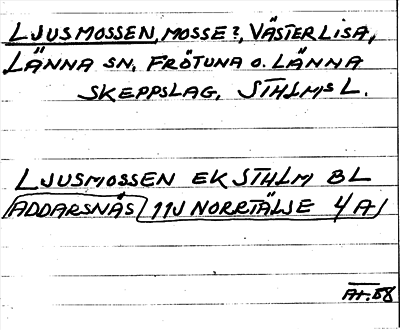 LJUSMOSSEN, MOSSE?, VÄSTERLISA,
LÄNNA SN. FRÖTUNA O. LÄNNA
SKEPPSLAG, STHLMS L.
LJUSMOSSEN EK STHLM BL
ADDARSNÄS 11J NORRTÄLJE 4A